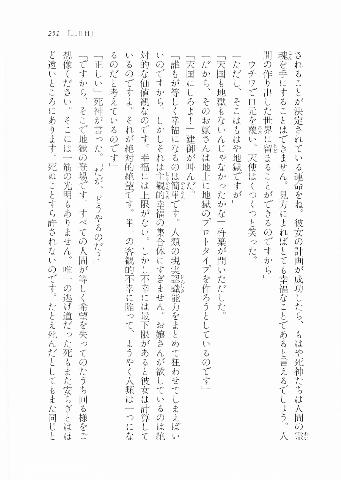 251 【三日目】
されることが決定されている運命をね。彼女の計画が成功したら、もはや死神たちは人間の霊
魂を手にすることはできません。見方によればとても幸福なことであると言えるでしょう。人
間の作り出した世界に留まることができるのですから」
ウチワで口元を覆い、天使はくつくつと笑った。
「ただし、そこはもはや地獄ですが」
「天国も地獄もないんじゃなかったかな」杵築が問いただした。
「だから、そのお嬢さんは地上に地獄のプロトタイプを作ろうとしているのです」
「天国にしろよ！」建御が叫んだ。
「誰もが等しく幸福になるのは簡単です。人類の現実認識能力をまとめて狂わせてしまえばい
いのですから。しかしそれは主観的幸福の集合体にすぎません。お嬢さんが欲しているのは絶
対的な価値観なのです。幸福には上限がない。しかし不幸には最下限があると彼女は計算して
いるのですよ。それが絶対的絶望です。単一の客観的不幸に陥って、ようやく人類は一つにな
るのだと考えているのです」
「正しい」死神が言った。「だが、どうやるのだ？」
「ですから、そこで地獄の登場です。すべての人間が等しく希望を失ってのたうち回る様をご
想像ください。そこには一筋の光明もありません。唯一の逃げ道だった死もまた安らぎとはほ
ど遠いところにあります。死ぬことすら許されないのです。たとえ死んだとしてもまた同じと